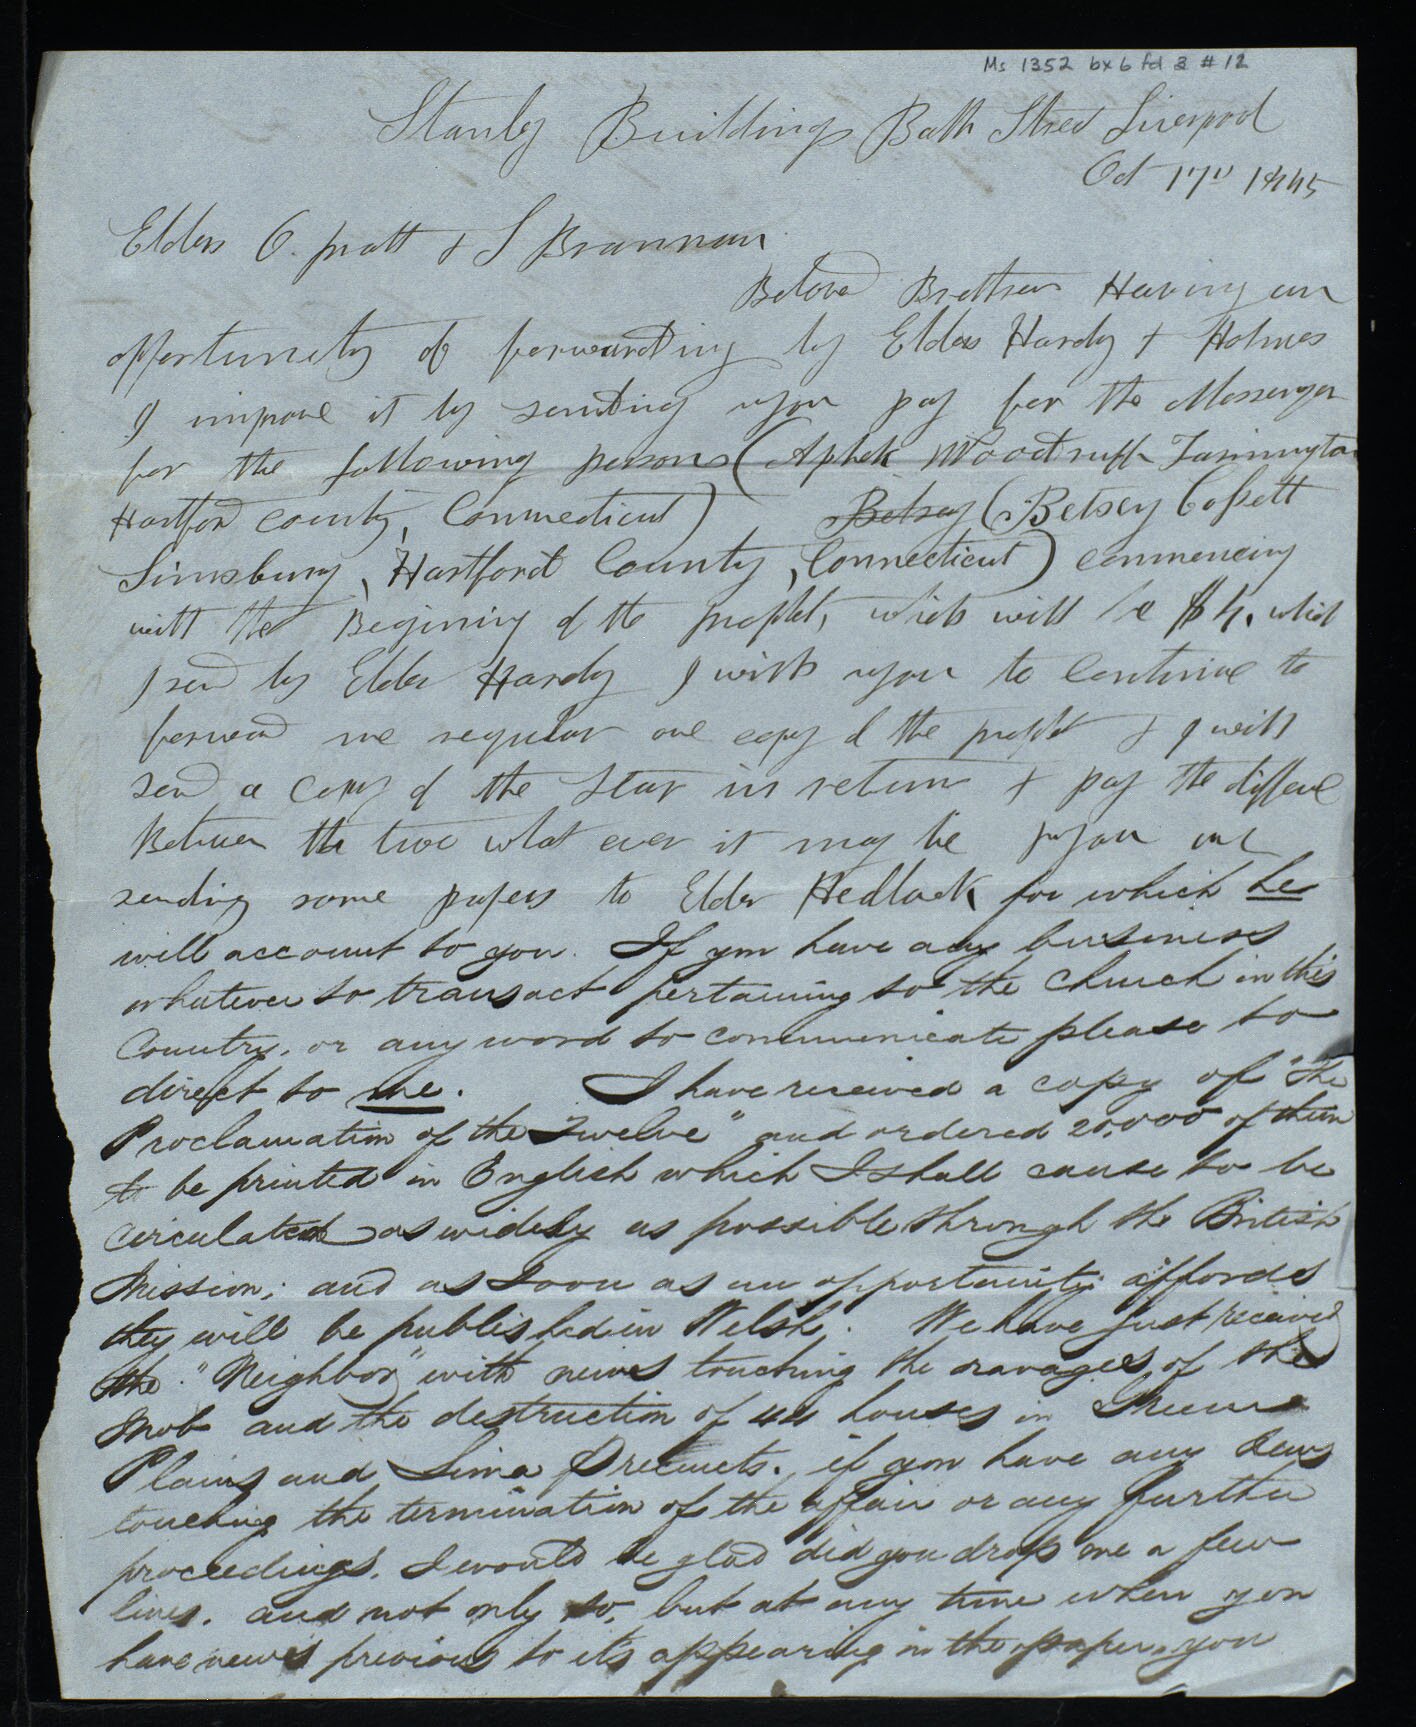 Ms 1352 bx 6 fd 3 #12
Stanley Buildings Bath Street Liverpool
Oct 17th 1845
Elders O. pratt & S Brannan
Beloved Brethren Having an
opportunity of forwarding by Elders Hardy & Holmes
I improve it by sending you pay for the Messenger
for the following persons (Aphek Woodruff Farmington
Hartford county, Connecticut) Betsey (Betsey Cossett
Simsbury, Hartford County, Connecticut) commencing
with the Begining of the prophet, which will be $4. which
I send by Elder Hardy I wish you to continue to
forward me regular one copy of the prophet & I will
send a copy of the Star in return & pay the differe
Between the two what ever it may be you are
sending some papers to Elder Hedlock for which he
will account to you. If you have any business
whatever to transact pertaining to the Church in this
Country, or any word to communicate please to
direct to me. I have received a copy of "The
Proclamation of the Twelve" and ordered 20,000 of them
to be printed in English which I shall cause to be
circulated as widely as possible through the British
Mission; and as soon as an opportunity affords
they will be published in Welsh. We have just received
the "Neighbor" with news touching the ravages of the
Mob and the destruction of 44 houses in Greene
Plains and Lima Precincts. if you have any news
touching the termination of the affair or any further
proceedings. I would be glad did you drop me a few
lines. and not only so, but at any time when you
have news previous to it's appearing in the papers, you